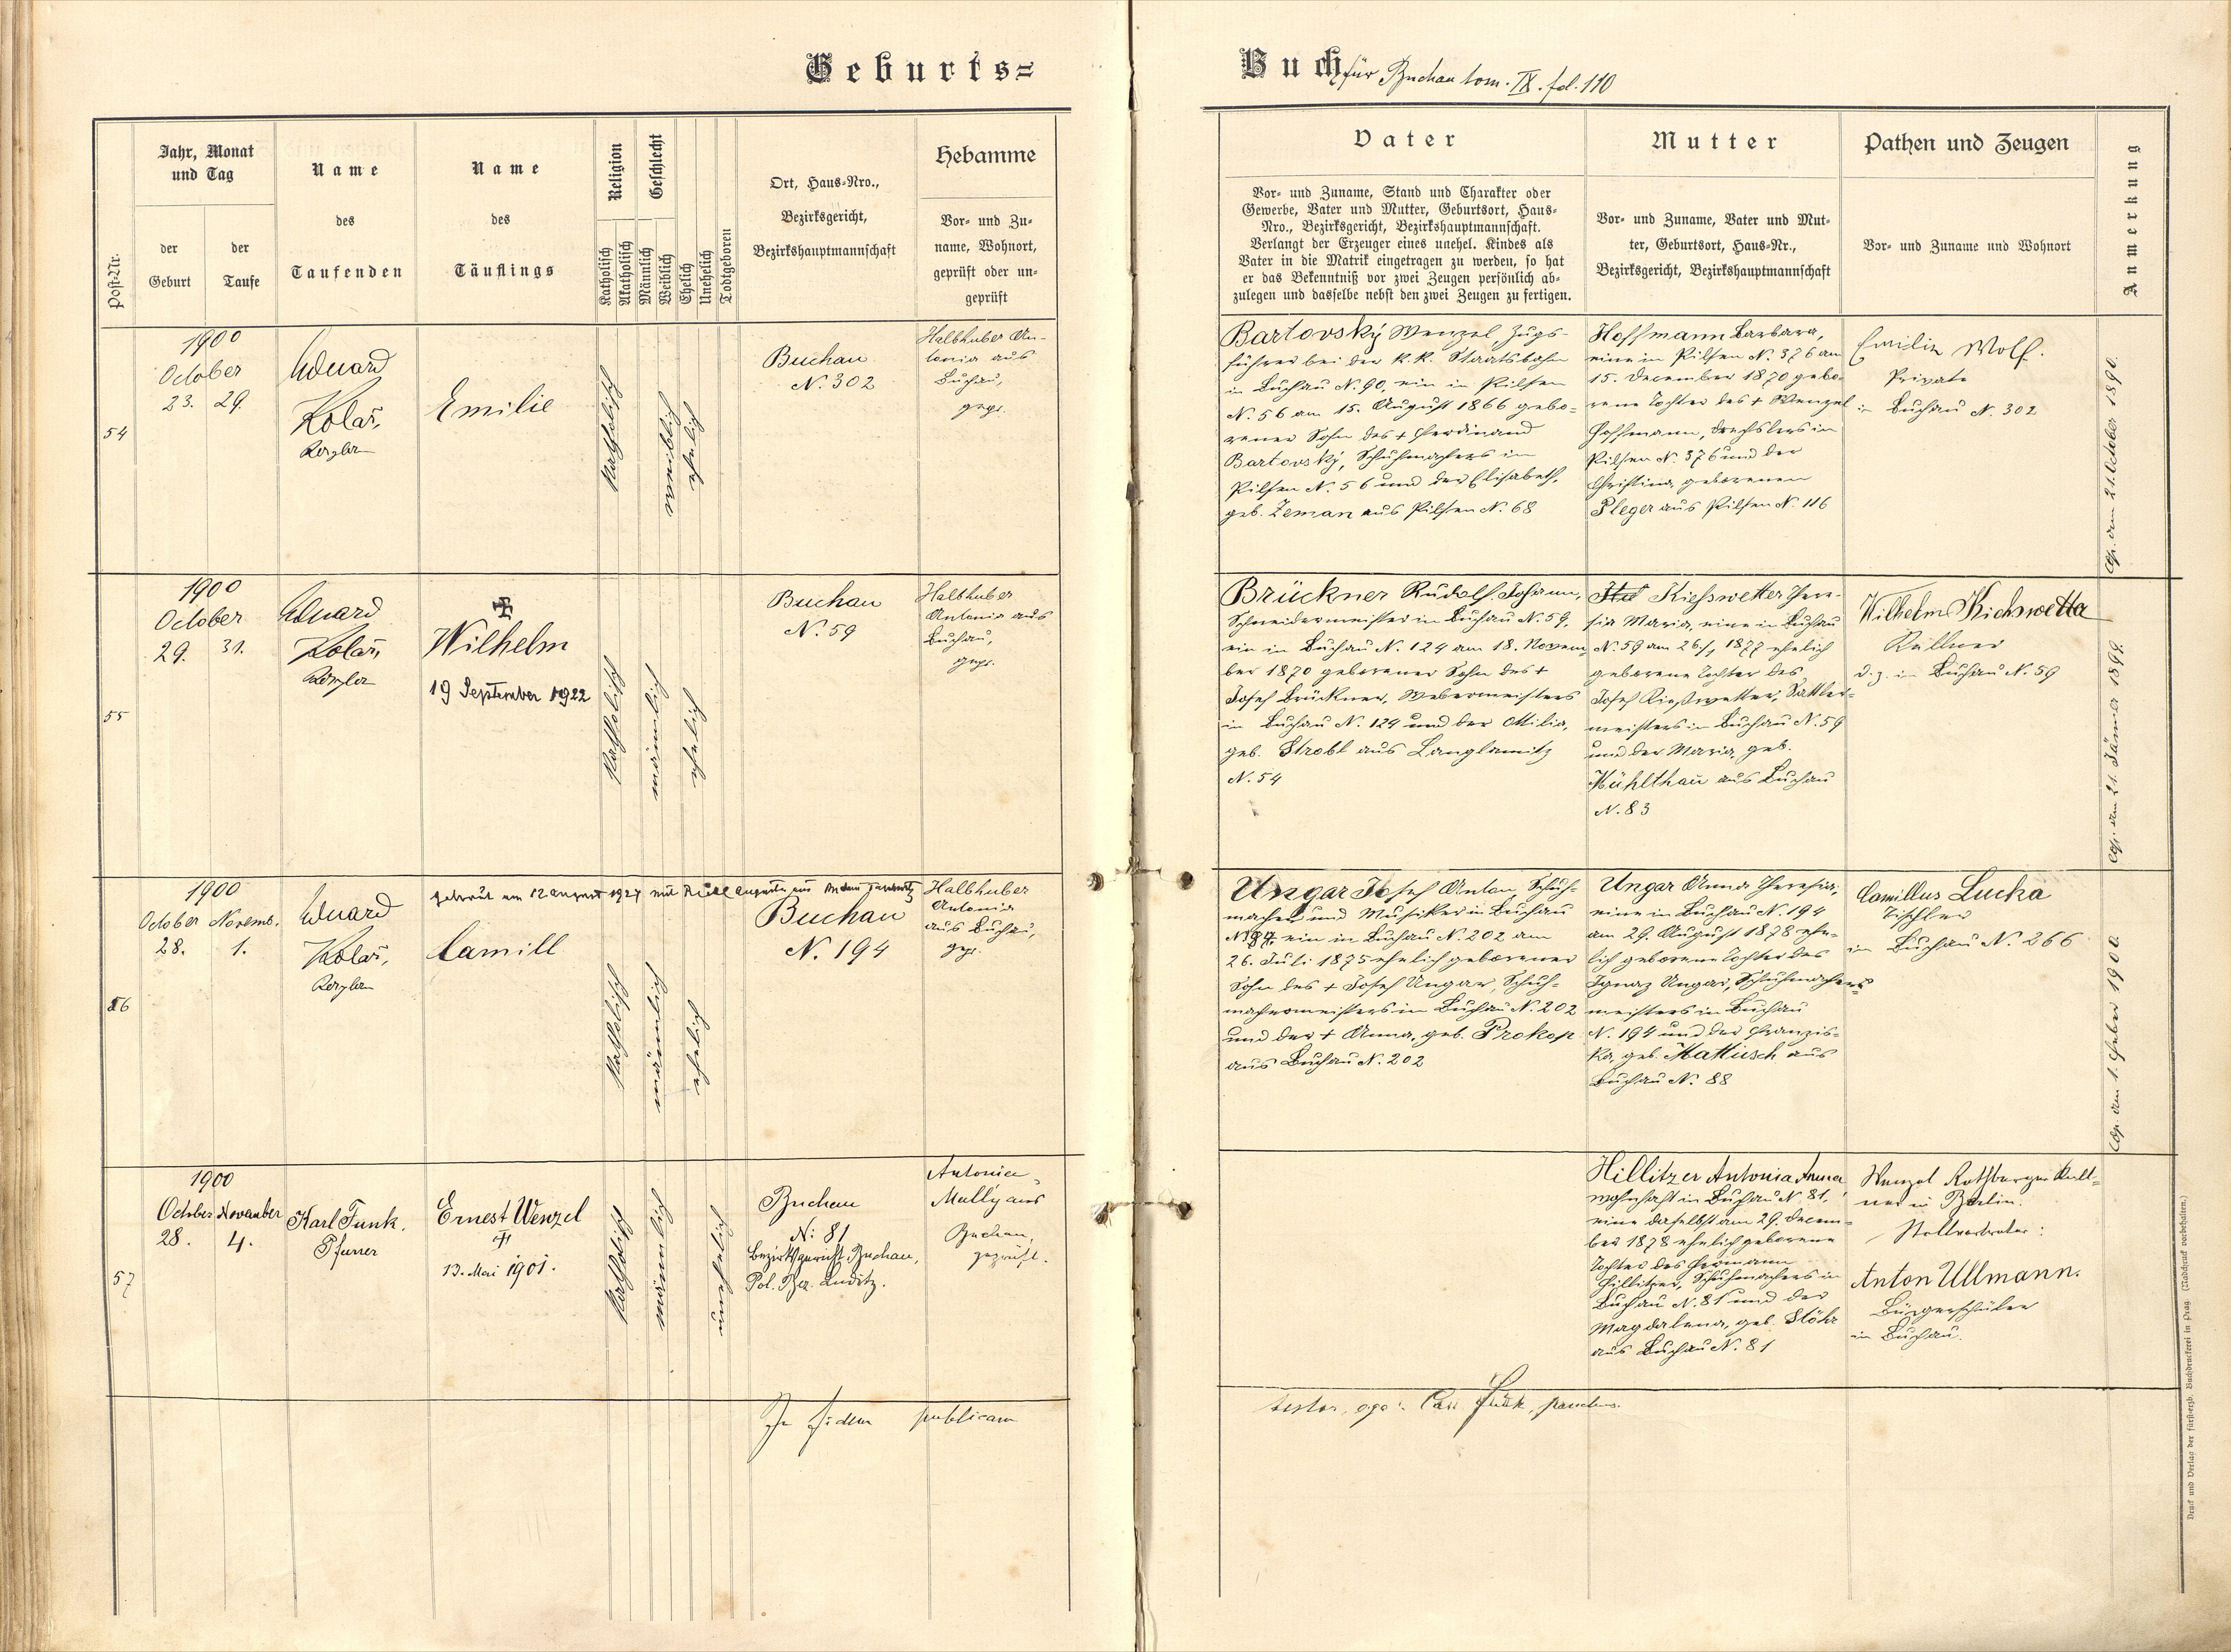 Geburts=
Buch für Buchau tom. IX. fol. 110
Post-Nr.
Jahr, Monat
und Tag
der
Geburt
der
Taufe
Name
des
Taufenden
Name
des
Täuflings
Religion
Katholisch
Akatholisch
Geschlecht
Männlich
Weiblich
Ehelich
Unehelich
Todtgeboren
Ort, Haus=Nro.,
Bezirksgericht,
Bezirkshauptmannschaft
Hebamme
Vor= und Zu=
name, Wohnort,
geprüft oder un=
geprüft
Vater
Vor= und Zuname, Stand und Charakter oder
Gewerbe, Vater und Mutter, Geburtsort, Haus=
Nro., Bezirksgericht, Bezirkshauptmannschaft.
Verlangt der Erzeuger eines unehel. Kindes als
Vater in die Matrik eingetragen zu werden, so hat
er das Bekenntniß vor zwei Zeugen persönlich ab=
zulegen und dasselbe nebst den zwei Zeugen zu fertigen.
Mutter
Vor= und Zuname, Vater und Mut=
ter, Geburtsort, Haus=Nr.,
Bezirksgericht, Bezirkshauptmannschaft
Pathen und Zeugen
Vor= und Zuname und Wohnort
Anmerkung
54
1900
October
23. 29.
Eduard
Kolář,
Emilie
katholisch
weiblich
ehelich
Buchau
N. 302
Halbhuber An-
tonia aus
Buchau,
gepr.
Bartovský Wenzel, Zugs-
führer bei der k.k. Staatsbahn
in Buchau N. 90, ein in Pilsen
N. 56 am 15. August 1866 gebo=
rener Sohn des + Ferdinand
Bartovský, Schuhmachers in
Pilsen N. 56 und der Elisabeth,
geb. Zeman aus Pilsen N. 68
Hoffmann Barbara,
eine in Pilsen N. 376 am
15. December 1870 gebo-
rene Tochter des + Wenzel
Hoffmann, Drechslers in
Pilsen N. 376 und der
Christina, geborenen
Pleger aus Pilsen N. 116
Emilie Wolf.
Private
in Buchau N. 302
Cop. am 21. October 1890.
55
1900
October
29. 31.
Eduard
Kolář,
Wilhelm
19 September 1922
katholisch
männlich
ehelich
Buchau
N. 59
Halbhuber
Antonia aus
Buchau,
gepr.
Brückner Rudolf Johann,
Schneidermeister in Buchau N. 59,
ein in Buchau N. 124 am 18. Novem-
ber 1870 geborener Sohn des +
Josef Brückner, Webermeisters
in Buchau N. 124 und der Ottilia,
geb. Strobl aus Langlamitz
N. 54
Kiesswetter There-
sia Maria, eine in Buchau
N. 59 am 26./1 1877 ehelich
geborene Tochter des
Josef Kießwetter, Sattler-
meisters in Buchau N. 59
und der Maria, geb.
Mühlthau aus Buchau
N. 83
Wilhelm Kieswetter
Kellner
d. z. in Buchau N. 59
Cop. am 21. Jänner 1899.
56
1900
October Novemb.
28. 1.
Eduard
Kolář,
Camill
getraut am 12 August 1927 mit
katholisch
männlich
ehelich
Buchau
N. 194
Halbhuber
Antonia
aus Buchau,
gepr.
Ungar Josef Anton, Schuh-
macher und Musiker in Buchau
ein in Buchau N. 202 am
26. Juli 1875 ehelich geborener
Sohn des + Josef Ungar, Schuh-
machermeisters in Buchau N. 202
und der + Anna, geb. Prokop
aus Buchau N. 202
Ungar Anna Theresia,
eine in Buchau N. 194
am 29. August 1878 ehe-
lich geborene Tochter des
Ignaz Ungar, Schuhmacher-
meisters in Buchau
N. 194 und der Franzis-
ka, geb. Mattusch aus
Buchau N. 88
Camillus Lucka
Tischler
in Buchau N. 266
Cop. am 1. Feber 1900.
57
1900
October November
28. 4.
Karl Funk.
Pfarrer
Ernest Wenzel
13. Mai 1901.
katholisch
männlich
unehelich
Buchau
N: 81
Bezirksgericht Buchau,
Pol. Bez. Luditz.
Antonia
Mally aus
Buchau,
geprüft.
Hillitzer Antonia Anna
wohnhaft in Buchau N. 81,
eine daselbst am 29. Decem-
ber 1878 ehelich geborene
Tochter des Hermann
Hillitzer, Schuhmachers in
Buchau N. 81 und der
Magdalena, geb. Stöhr
aus Buchau N. 81
Wenzel Rothberger Kell-
ner in Berlin.
Stellvertreter:
Anton Ullmann.
Bürgerschüler
in Buchau.
In fidem publicam
testor, ego: Car. Funk, parochus.
Druck und Verlag der fürst-erzb. Buchdruckerei in Prag. (Nachdruck vorbehalten.)